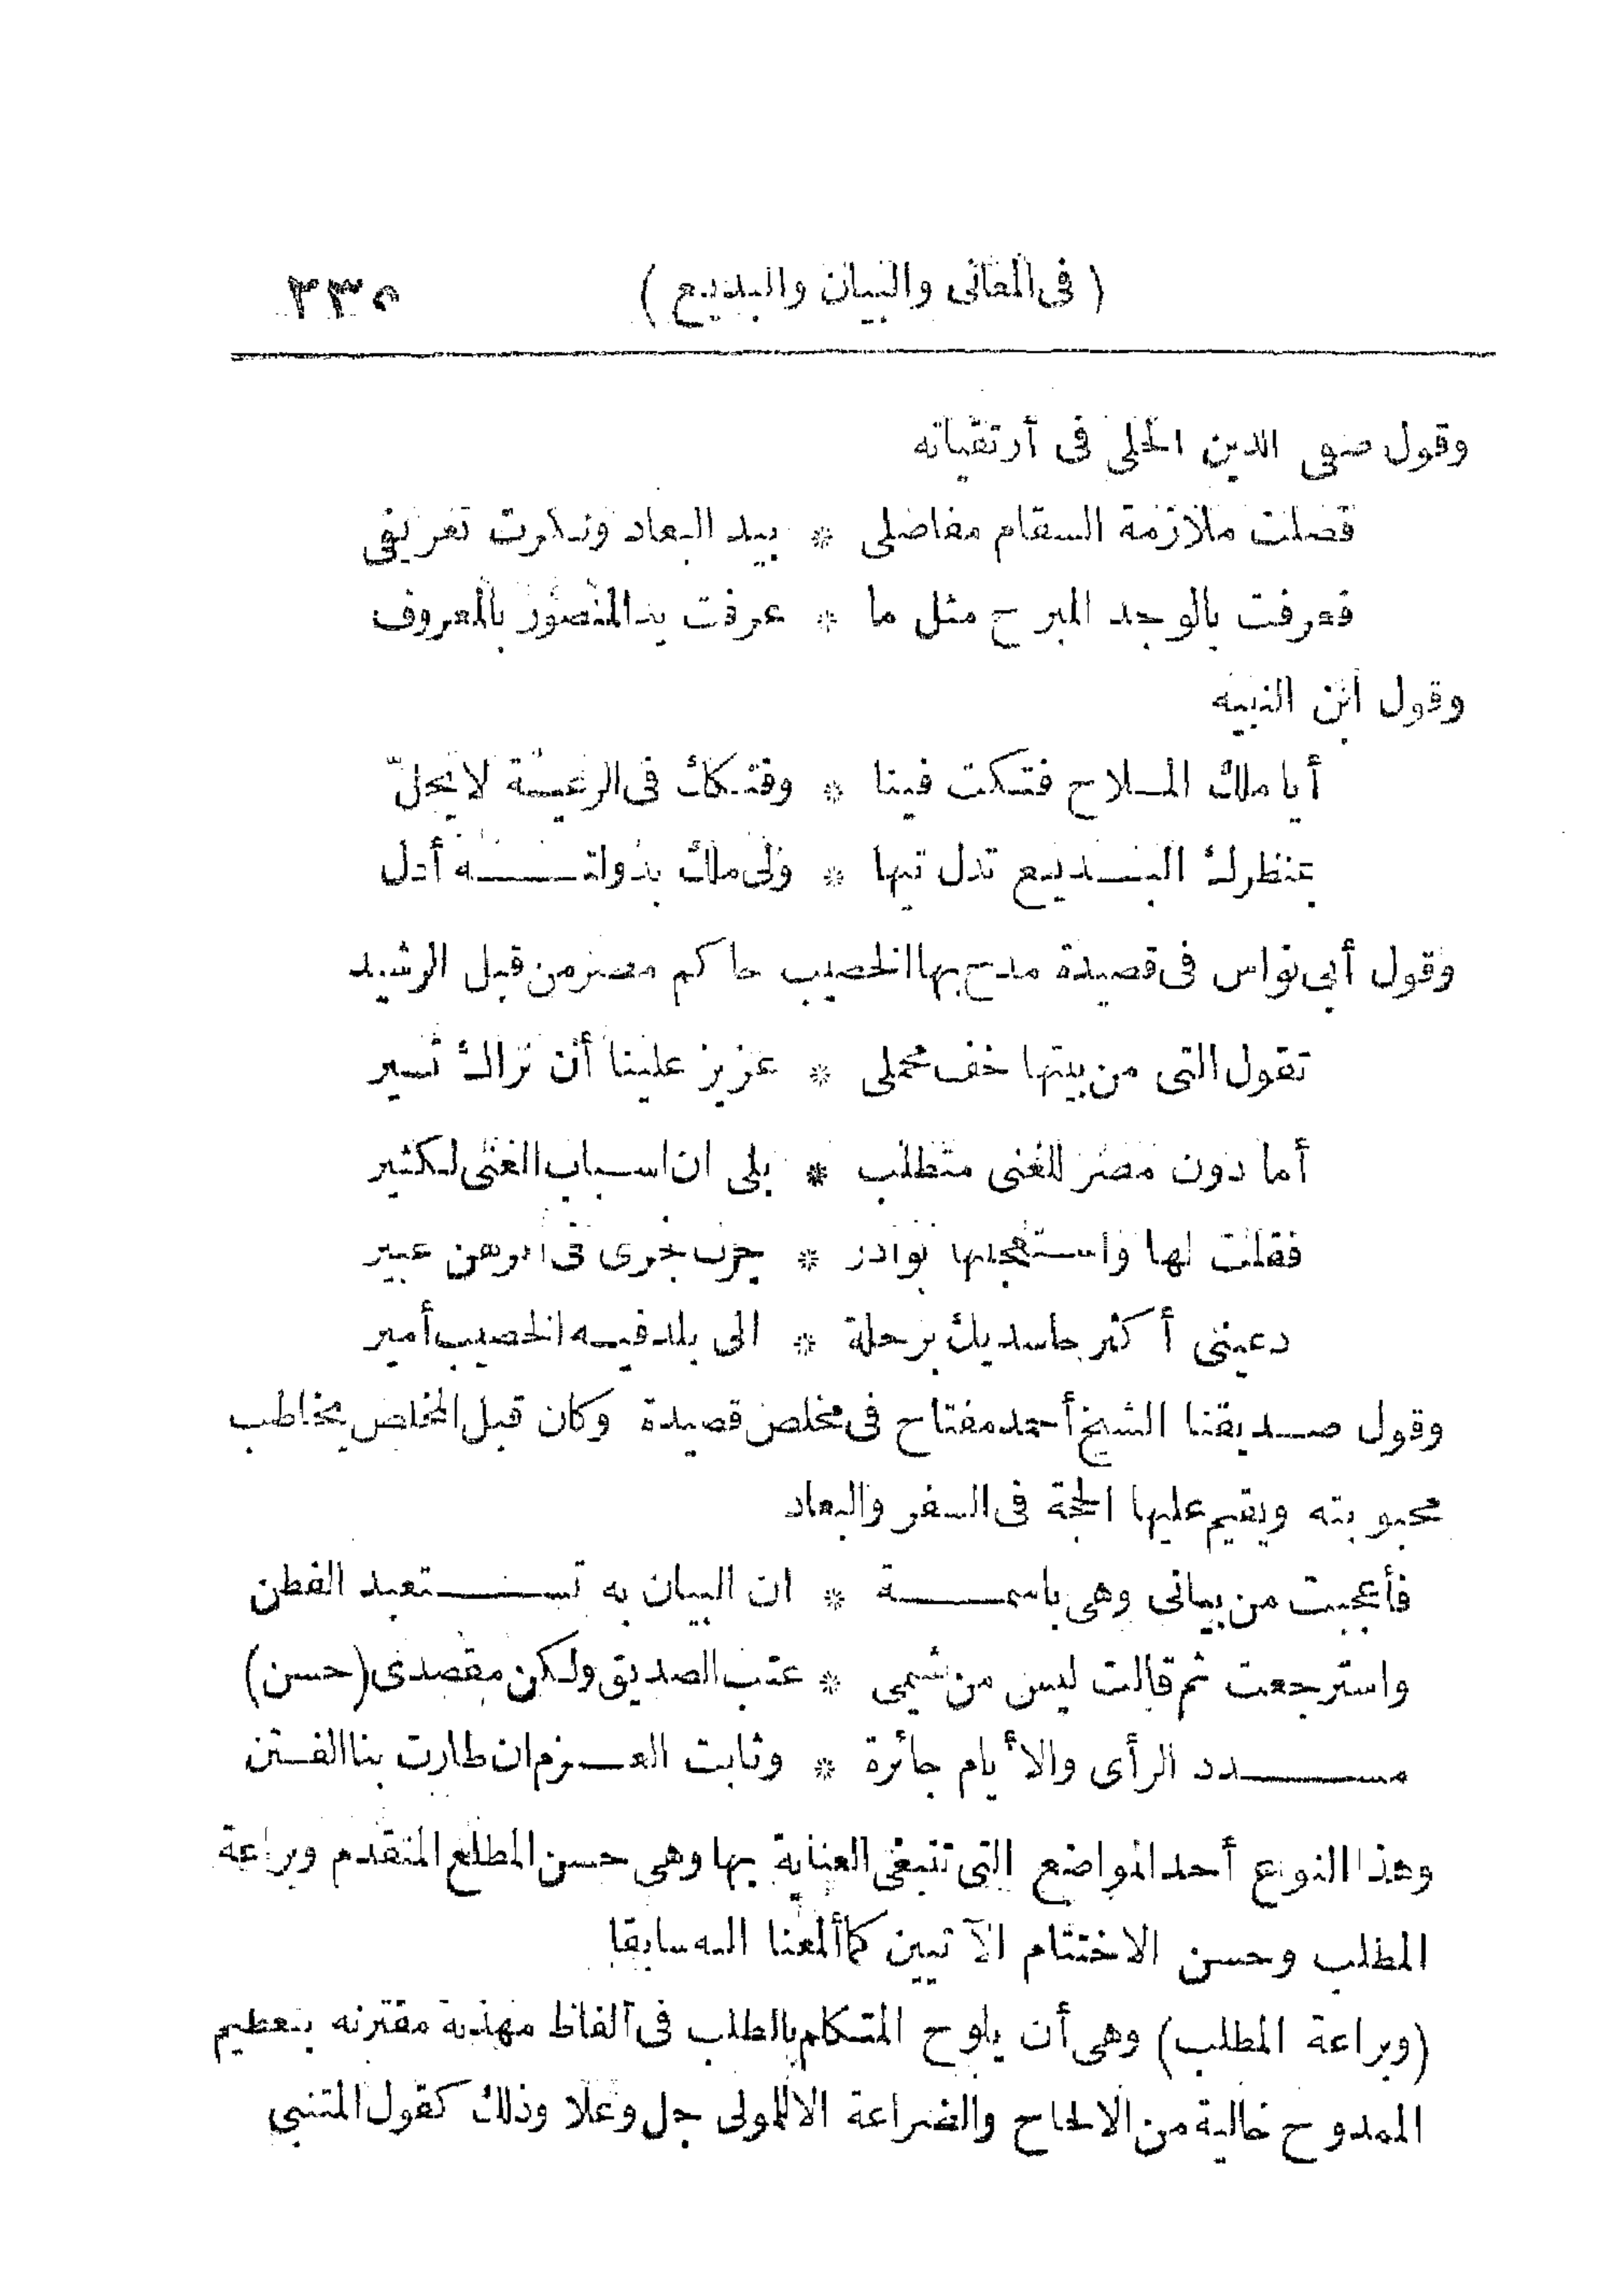 ( فى المعانى والبيان والبديع ) ٢٣٥
وقول صفى الدين الحلى فى أرتقياته
فصلت ملازمة السقام مفاصلى * بيد البعاد ونكرت تعريفى
فعرفت بالوجد المبرح مثل ما * عرفت يد المنصور بالمعروف
وقول ابن النبيه
أيا ملك الملاح فتكت فينا * وفتكك فى الرعية لا يحلّ
بمنظرك البديع تدل تيها * ولى ملك بدولته أدل
وقول أبى نواس فى قصيدة مدح بها الخصيب حاكم مصر من قبل الرشيد
تقول التى من بيتها خف محملى * عزيز علينا أن نراك تسير
أما دون مصر للغنى متطلب * بلى ان اسباب الغنى لكثير
فقلت لها واستعجلتها بوادر * جرت فجرى فى اثرهن عبير
دعينى أكثر حاسديك برحلة * الى بلد فيه الخصيب أمير
وقول صديقنا الشيخ أحمد مفتاح فى مخلص قصيدة وكان قبل المخلص يخاطب
محبوبته ويقيم عليها الحجة فى السفر والبعاد
فأعجبت من بيانى وهى باسمة * ان البيان به تستعبد الفطن
واسترجعت ثم قالت ليس من شيمى * عتب الصديق ولكن مقصدى (حسن)
مسدد الرأى والأيام جائرة * وثابت العزم ان طارت بنا الفتن
وهذا النوع أحد المواضع التى تنبغى العناية بها وهى حسن المطلع المتقدم وبراعة
المطلب وحسن الاختتام الآتيين كما ألمعنا اليه سابقا
(وبراعة المطلب) وهى أن يلوح المتكلم بالطلب فى ألفاظ مهذبة مقترنه بتعظيم
الممدوح خالية من الالحاح والضراعة الا للمولى جل وعلا وذلك كقول المتنبى